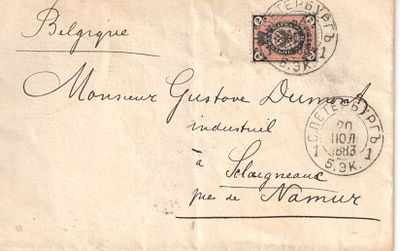 Belgique
С.ПЕТЕРБУРГЪ
1
5.ЭК.
Monsieur Gustave Dumont
industriel
à Sclaigneaux
près de Namur
С.ПЕТЕРБУРГЪ
20
ІЮЛ
1883
1 1
5.ЭК.